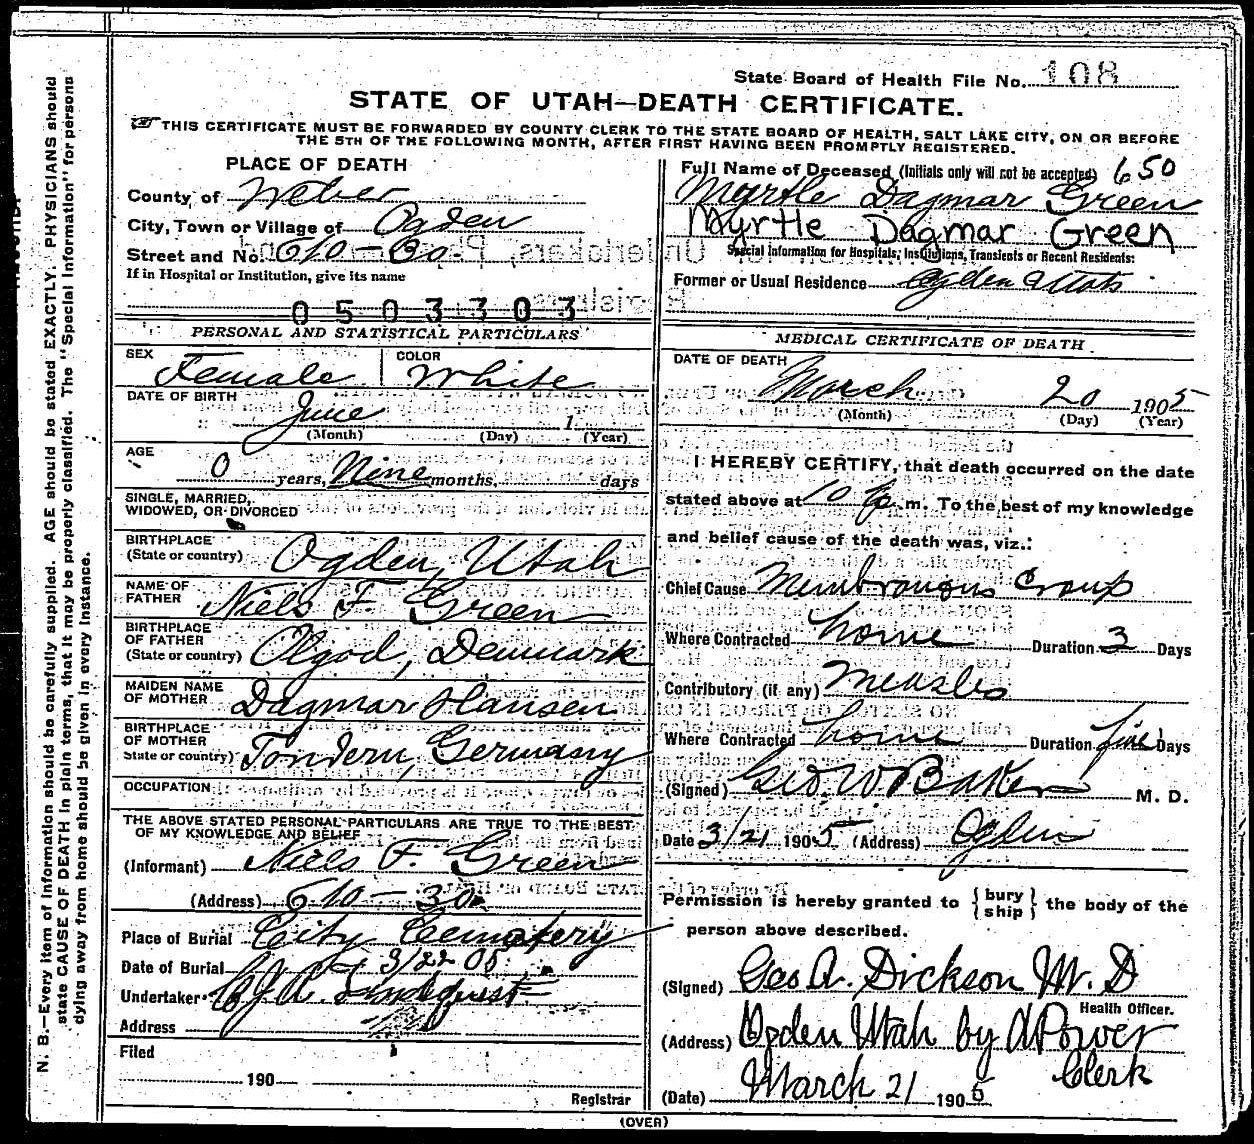 State Board of Health File No. 108
STATE OF UTAH—DEATH CERTIFICATE.
THIS CERTIFICATE MUST BE FORWARDED BY COUNTY CLERK TO THE STATE BOARD OF HEALTH, SALT LAKE CITY, ON OR BEFORE
THE 5TH OF THE FOLLOWING MONTH, AFTER FIRST HAVING BEEN PROMPTLY REGISTERED.
N. B.—Every item of information should be carefully supplied. AGE should be stated EXACTLY. PHYSICIANS should
state CAUSE OF DEATH in plain terms, that it may be properly classified. The "Special Information" for persons
dying away from home should be given in every instance.
PLACE OF DEATH
County of Weber
City, Town or Village of Ogden
Street and No. 610 - 30.
If in Hospital or Institution, give its name
0503303
PERSONAL AND STATISTICAL PARTICULARS
SEX Female
COLOR White
DATE OF BIRTH June 1
(Month) (Day) (Year)
AGE 0 years, Nine months, days
SINGLE, MARRIED,
WIDOWED, OR DIVORCED
BIRTHPLACE
(State or country) Ogden, Utah
NAME OF
FATHER Niels F. Green
BIRTHPLACE
OF FATHER
(State or country) Olgod, Denmark
MAIDEN NAME
OF MOTHER Dagmar Hansen
BIRTHPLACE
OF MOTHER
State or country) Tondern, Germany
OCCUPATION
THE ABOVE STATED PERSONAL PARTICULARS ARE TRUE TO THE BEST
OF MY KNOWLEDGE AND BELIEF
(Informant) Niels F. Green
(Address) 610 - 30
Place of Burial City Cemetery
Date of Burial 3/22 05
Undertaker Lindquist
Address
Filed
190
Registrar
Full Name of Deceased (Initials only will not be accepted) 650
Myrtle Dagmar Green
Myrtle Dagmar Green
Special Information for Hospitals, Institutions, Transients or Recent Residents:
Former or Usual Residence Ogden Utah
MEDICAL CERTIFICATE OF DEATH
DATE OF DEATH
March 20 1905
(Month) (Day) (Year)
I HEREBY CERTIFY, that death occurred on the date
stated above at 10 p. m. To the best of my knowledge
and belief cause of the death was, viz.:
Chief Cause Membranous Croup
Where Contracted home Duration 3 Days
Contributory (if any) Measles
Where Contracted home Duration five Days
(Signed) Geo. W Baker M. D.
Date 3/21 1905 (Address) Ogden
Permission is hereby granted to { bury ship } the body of the
person above described.
(Signed) Geo A. Dickson M. D
Health Officer.
(Address) Ogden Utah by A Power
Clerk
(Date) March 21 1905
(OVER)